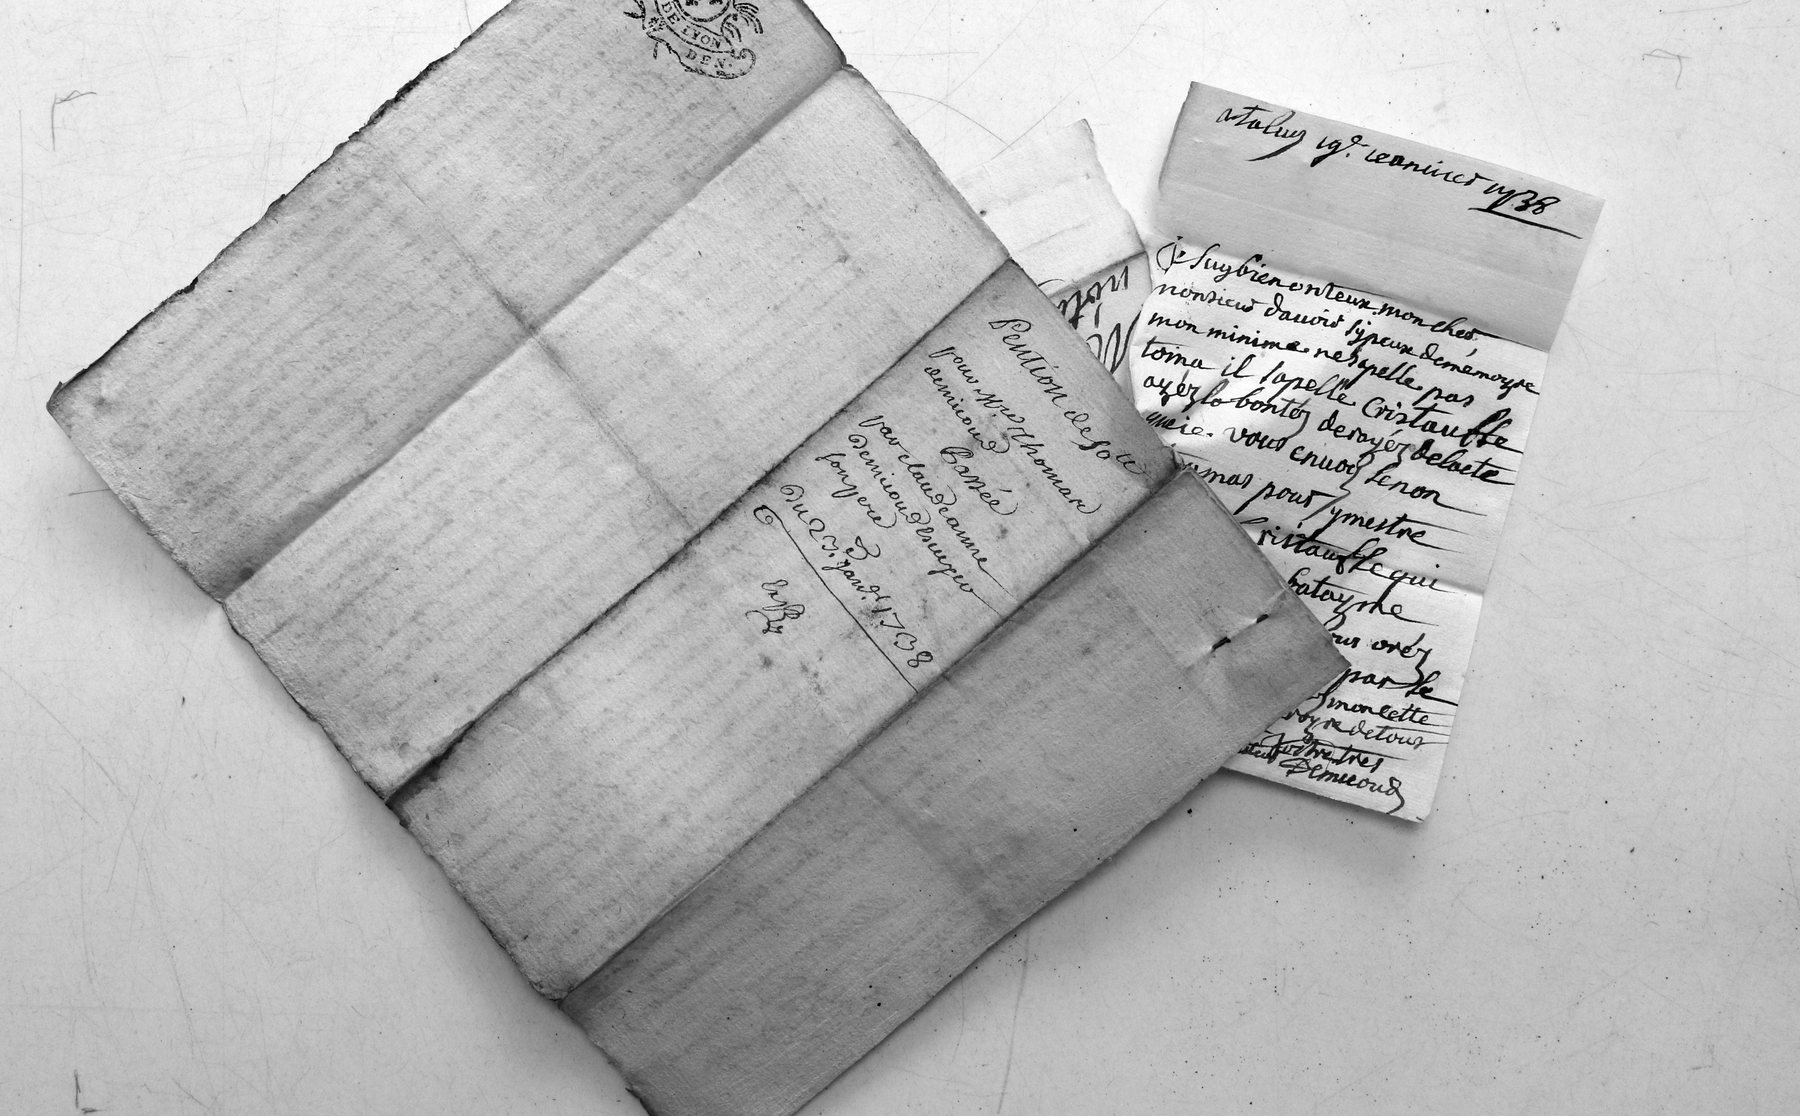 DE LYON
DEN.
Pention de 50 ll
pour Mre Thomare
demicoud
Cassée
par claude anne
demicoud ecuyer
son pere
Du 23. janvr 1738
Exp
ataluy 19e ieanuier 1738
Je suy bien onteux mon cher
monsieur dauoir sy peux de mémoyre
mon minime ne sapelle pas
toma il sapelle Cristauffle
ayéz la bontéz de rayéz de lacte
que ie vous enuoy le non
tomas pour y mestre
Cristauffle qui
batayme
vous oréz
par le
mon cette
de tour
vostre tres
Demicoud